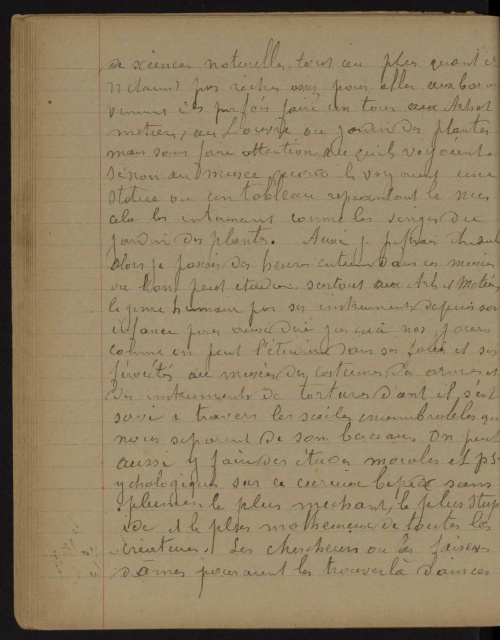 de sciences naturelles, tout au plus quand ils
n'étaient pas riches assez pour aller au
venaient ils parfois faire un tour aux Arts et
metiers, au Louvre ou jardin des plantes
mais sans faire attention a ce qu'ils voyaient
sinon au musee quand ils voyaient une
statue ou un tableau representant le nus
cela les interessaient comme les singes du
jardin des plantes. Aussi je preferais etre seul
alors je passais des heures entieres dans ces musées
ou l'on peut etudier, surtout aux Arts et Metiers,
le genre humain par ses instruments depuis son
enfance pour ainsi dire jusqu'à nos jours
comme on peut l'étudier dans ses folies et ses
férocités au musée des costumes des armes et
des instruments de tortures dont il s'est
servi a travers les siecles innombrables qui
nous separent de son berceau. On peut
aussi y faire des études morales et ps-
ychologiques sur ce curieux bipede sans
plumes, le plus mechant, le plus stup
ide et le plus malheureux de toutes les
creatures. Les chercheurs ou les faiseurs
d'âmes pourraient les trouver là dans ces